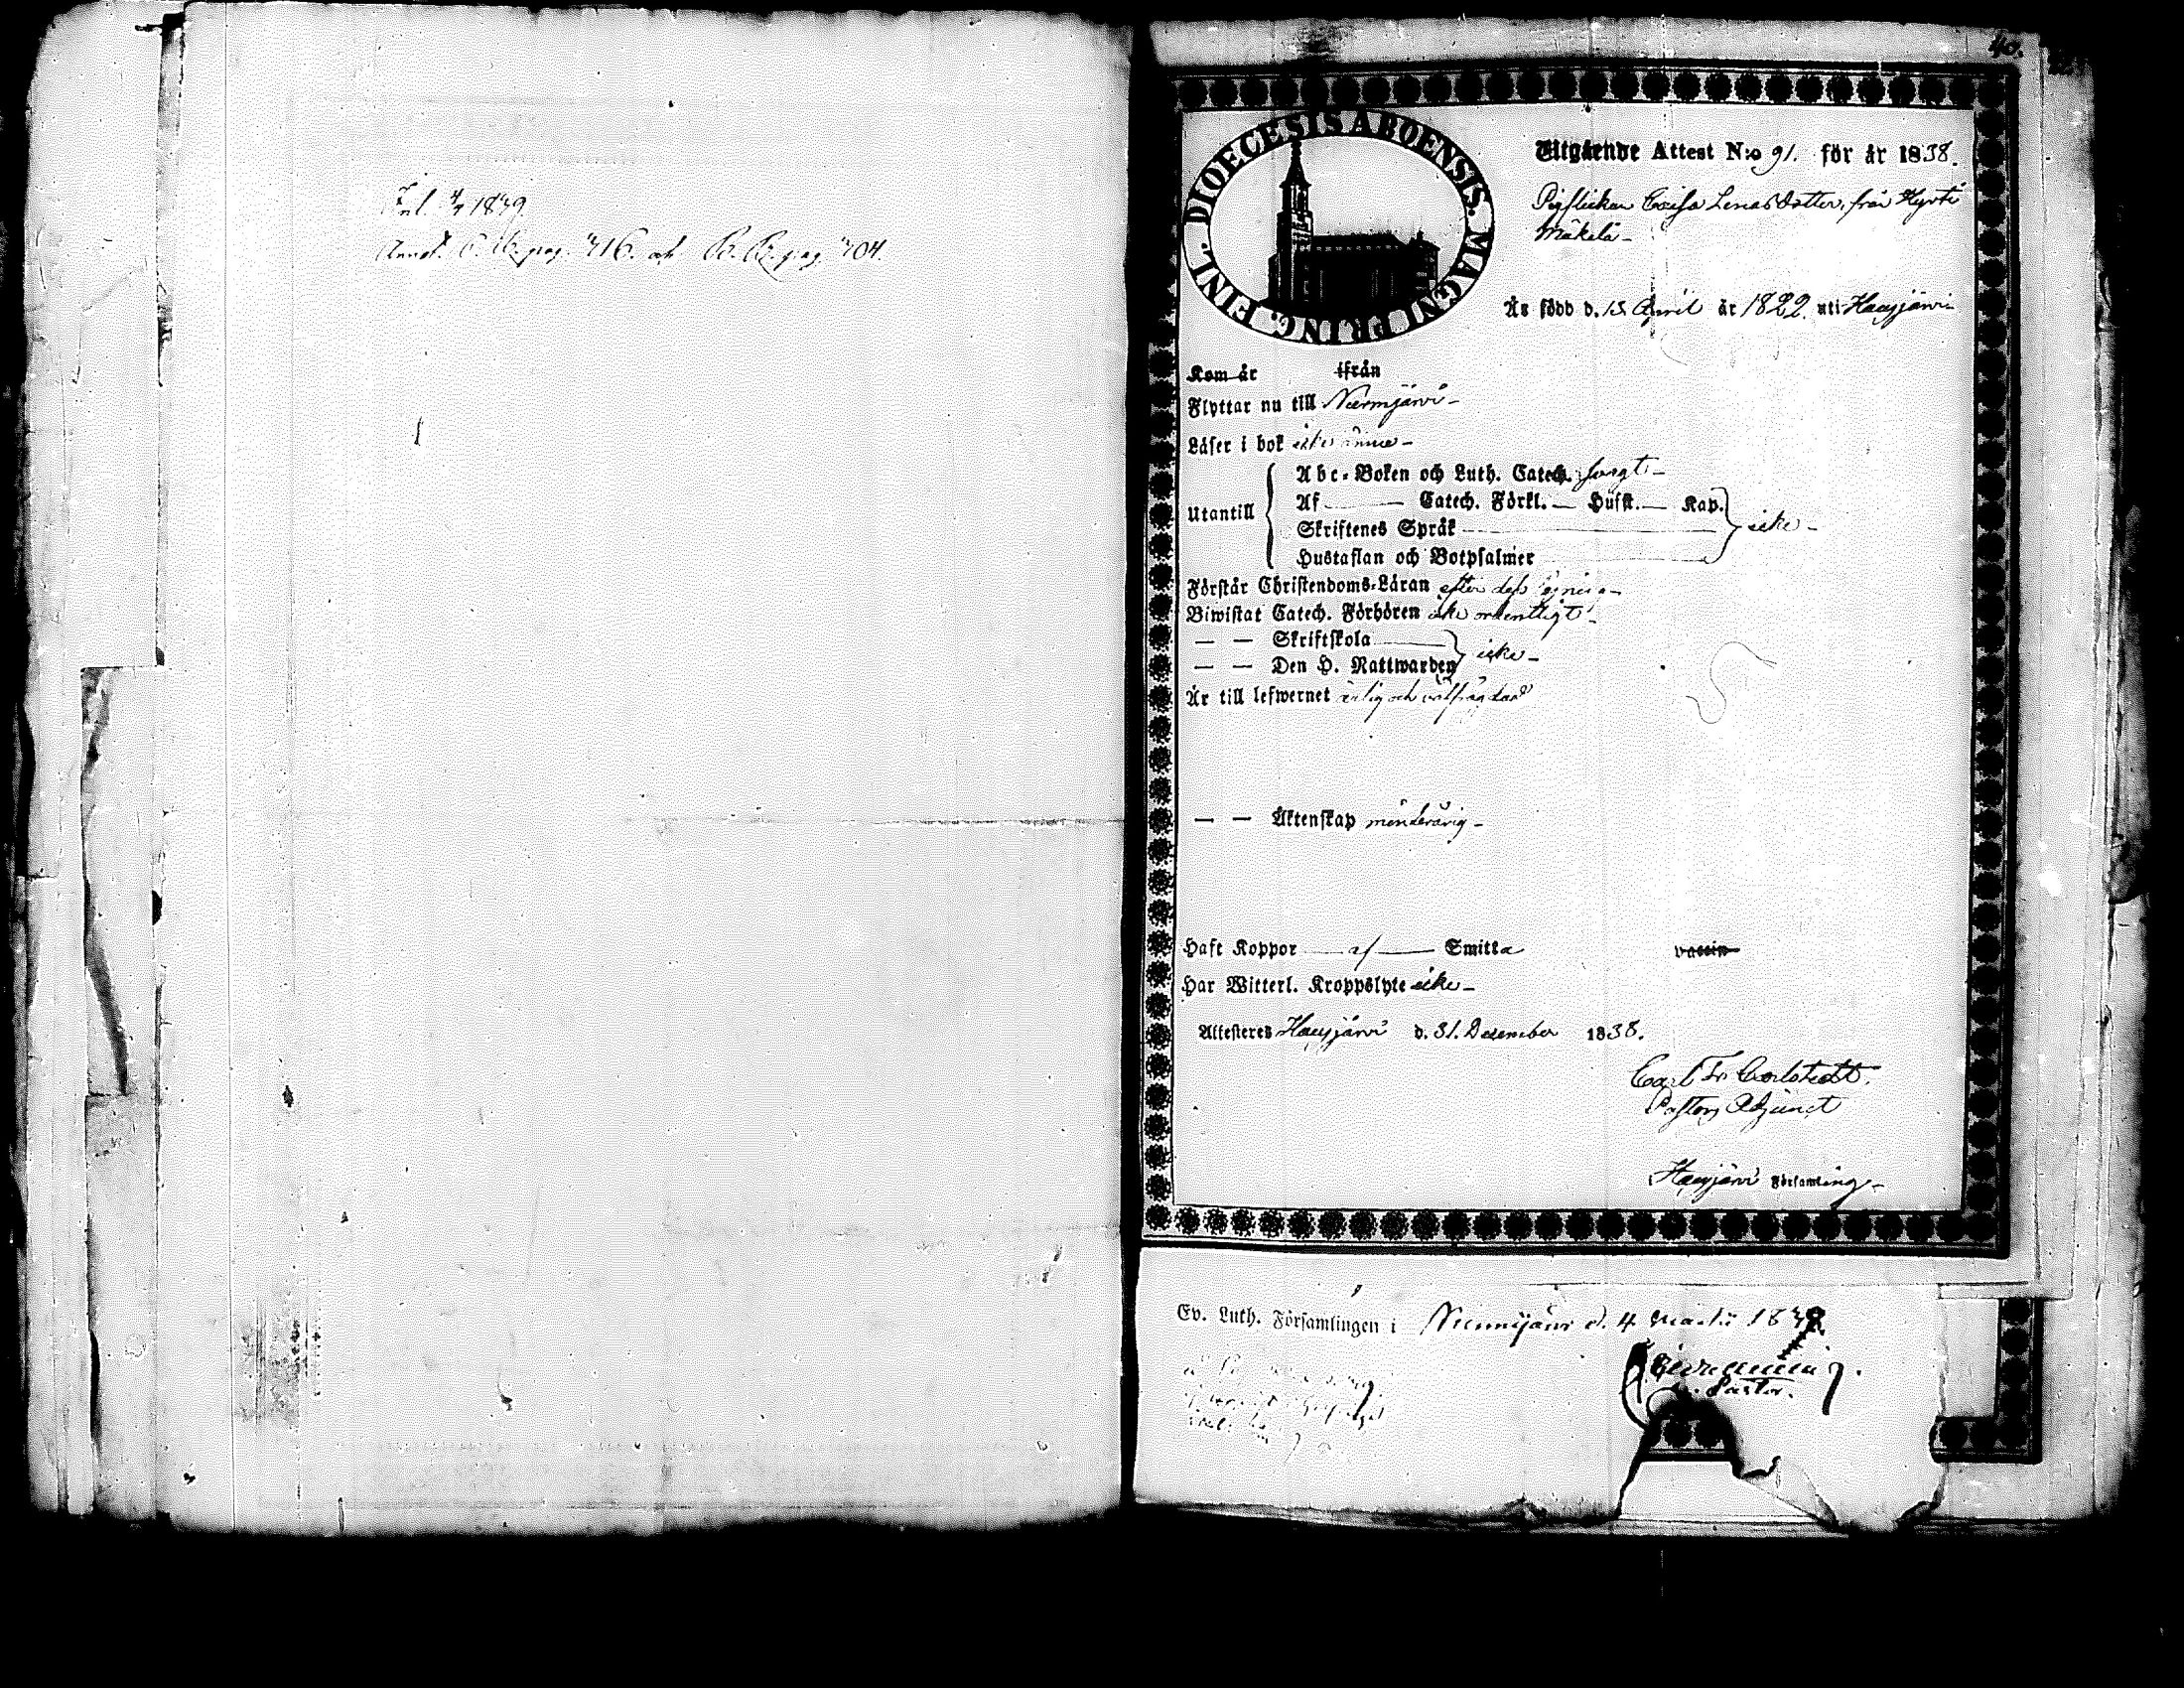 Inl. 4/4 1839.
Annot. C. B. pag. 716. och B. B. pag. 704.
40.
DIOECESIS ABOENSIS. MAGNI PRINC. FINL.
Utgående Attest N:o 91. för år 1838.
Pigflickan Caisa Lenasdotter, från Hyrti
Mäkelä -
Är född d. 15 April år 1822. uti Haujärvi
Kom år ifrån
Flyttar nu till Nurmijärvi -
Läser i bok icke ännu -
Utantill
Abc-Boken och Luth. Catech. svagt -
Af Catech. Förkl. — Hufst. — Kap.
Skriftenes Språk
icke -
Hustaflan och Botpsalmer
Förstår Christendoms-Läran efter dess
Biwistat Catech. Förhören icke ordentligt -
— — Skriftskola
— — Den H. Nattwarden icke -
Är till lefwernet ärlig och välfrägdad
— — Äktenskap minderårig -
Haft Koppor af Smitta vaccin
Har Witterl. Kroppslyte icke -
Attesteres d. 31. December 1838.
Carl Fr Carlstedt.
Pastors Adjunct
Församling -
Ev. Luth. Församlingen i Nurmijärvi d. 4 Martii 1839.
Pastor.